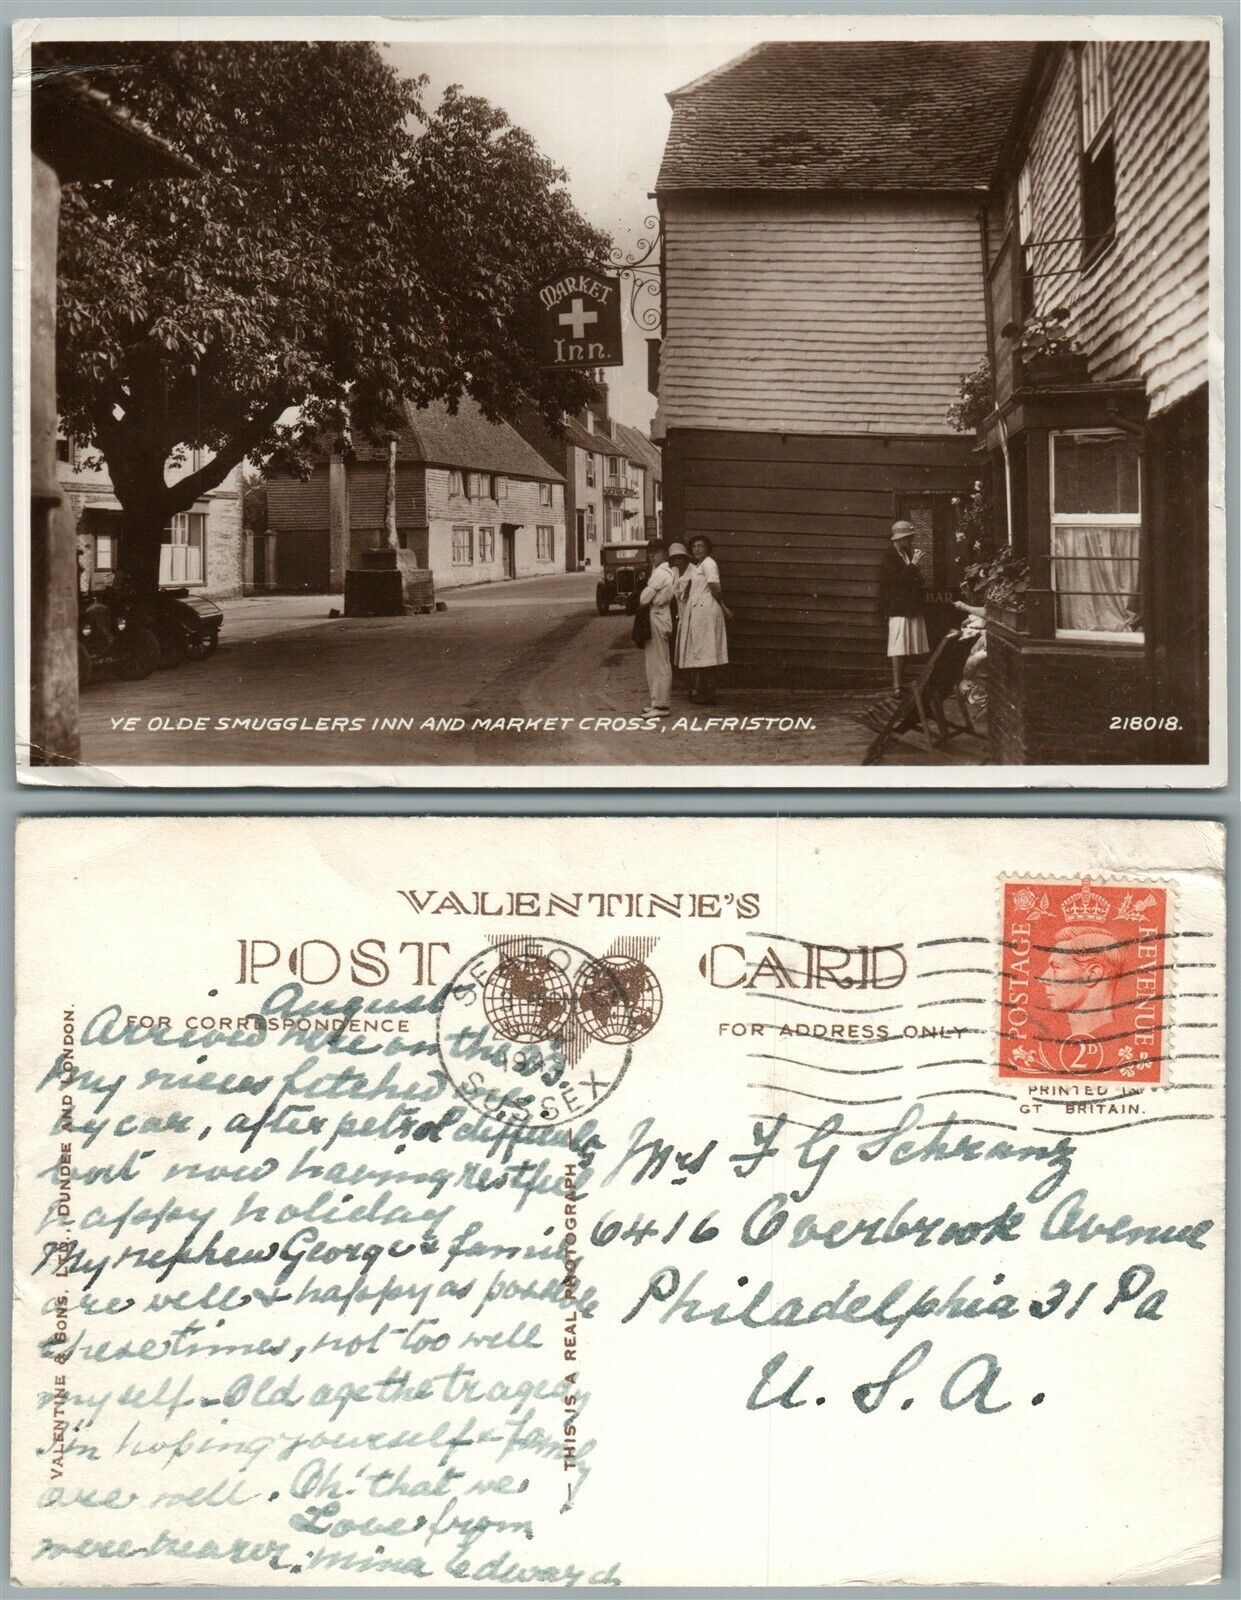 MARKET
Inn.
BAR
YE OLDE SMUGGLERS INN AND MARKET CROSS, ALFRISTON.
218018.
VALENTINE'S
POST CARD
FOR CORRESPONDENCE
FOR ADDRESS ONLY
SEAFORD
SUSSEX
POSTAGE
REVENUE
2D
PRINTED IN
GT. BRITAIN.
VALENTINE & SONS, LTD., DUNDEE AND LONDON.
— THIS IS A REAL PHOTOGRAPH —
August
Arrived here on the 23.
My nieces fetched me
by car, after petrol
but now having restful
happy holiday
My nephew George & family
are well & happy as possible
these times, not too well
myself - Old age the tragedy
I'm hoping yourself & family
are well. Oh! that we
were nearer. Love from
Mina Edwards
Mrs F G Schranz
6416 Overbrook Avenue
Philadelphia 31 Pa
U. S. A.